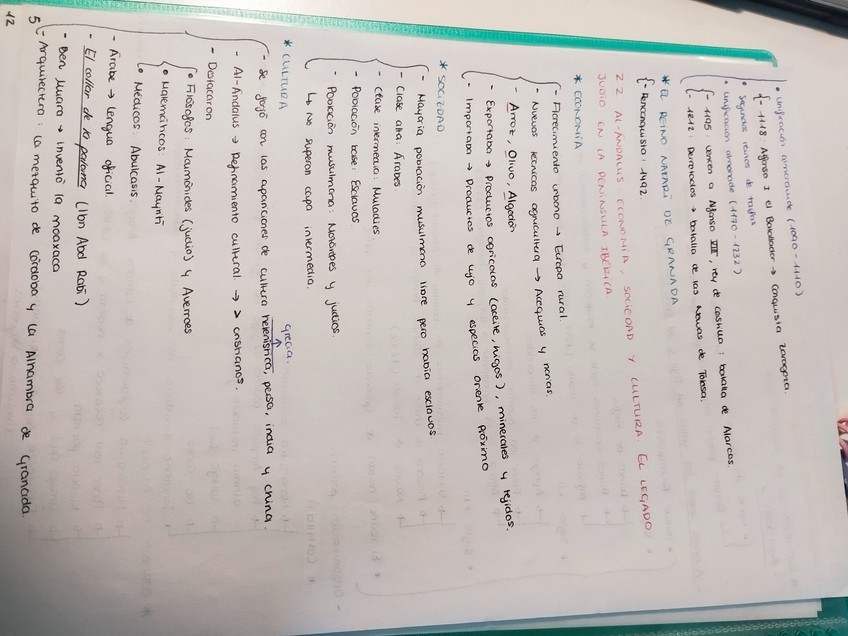 • Unificación almorávide (1090-1110)
{- 1118: Alfonso I el Batallador → conquista Zaragoza.
• Segundos reinos de taifas
• Unificación almohade (1170-1232)
{- 1195: Vencen a Alfonso VIII, rey de Castilla: batalla de Alarcos
- 1212: Derrotados → batalla de las Navas de Tolosa.
* EL REINO NAZARÍ DE GRANADA
{- Reconquista: 1492
2.2 AL-ANDALUS ECONOMÍA, SOCIEDAD Y CULTURA EL LEGADO
JUDÍO EN LA PENÍNSULA IBÉRICA
* ECONOMÍA
- Florecimiento urbano → Europa rural.
- Nuevas técnicas agricultura → Acequias y norias.
- Arroz, Olivo, Algodón
- Exportaba → Productos agrícolas (aceite, higos), minerales y tejidos.
- Importaba → Productos de lujo y especias Oriente Próximo
* SOCIEDAD
- Mayoría población musulmana libre pero había esclavos
- Clase alta: Árabes
- Clase intermedia: Muladíes
- Población base: Esclavos
- Población musulmana: Mozárabes y judíos.
↳ No superan capa intermedia.
* CULTURA
Grecia.
- Se forjó con las aportaciones de cultura helenística, persa, india y china.
- Al-Ándalus → Refinamiento cultural → > cristianos.
- Destacaron
• Filósofos: Maimónides (judío) y Averroes
• Matemáticos: Al-Nayriti
• Médicos: Abulcasis.
- Árabe → Lengua oficial.
- El collar de la paloma (Ibn Abd Rabi)
- Ben Muara → Inventó la moaxaca
- Arquitectura: La mezquita de Córdoba y la Alhambra de Granada.
5
12